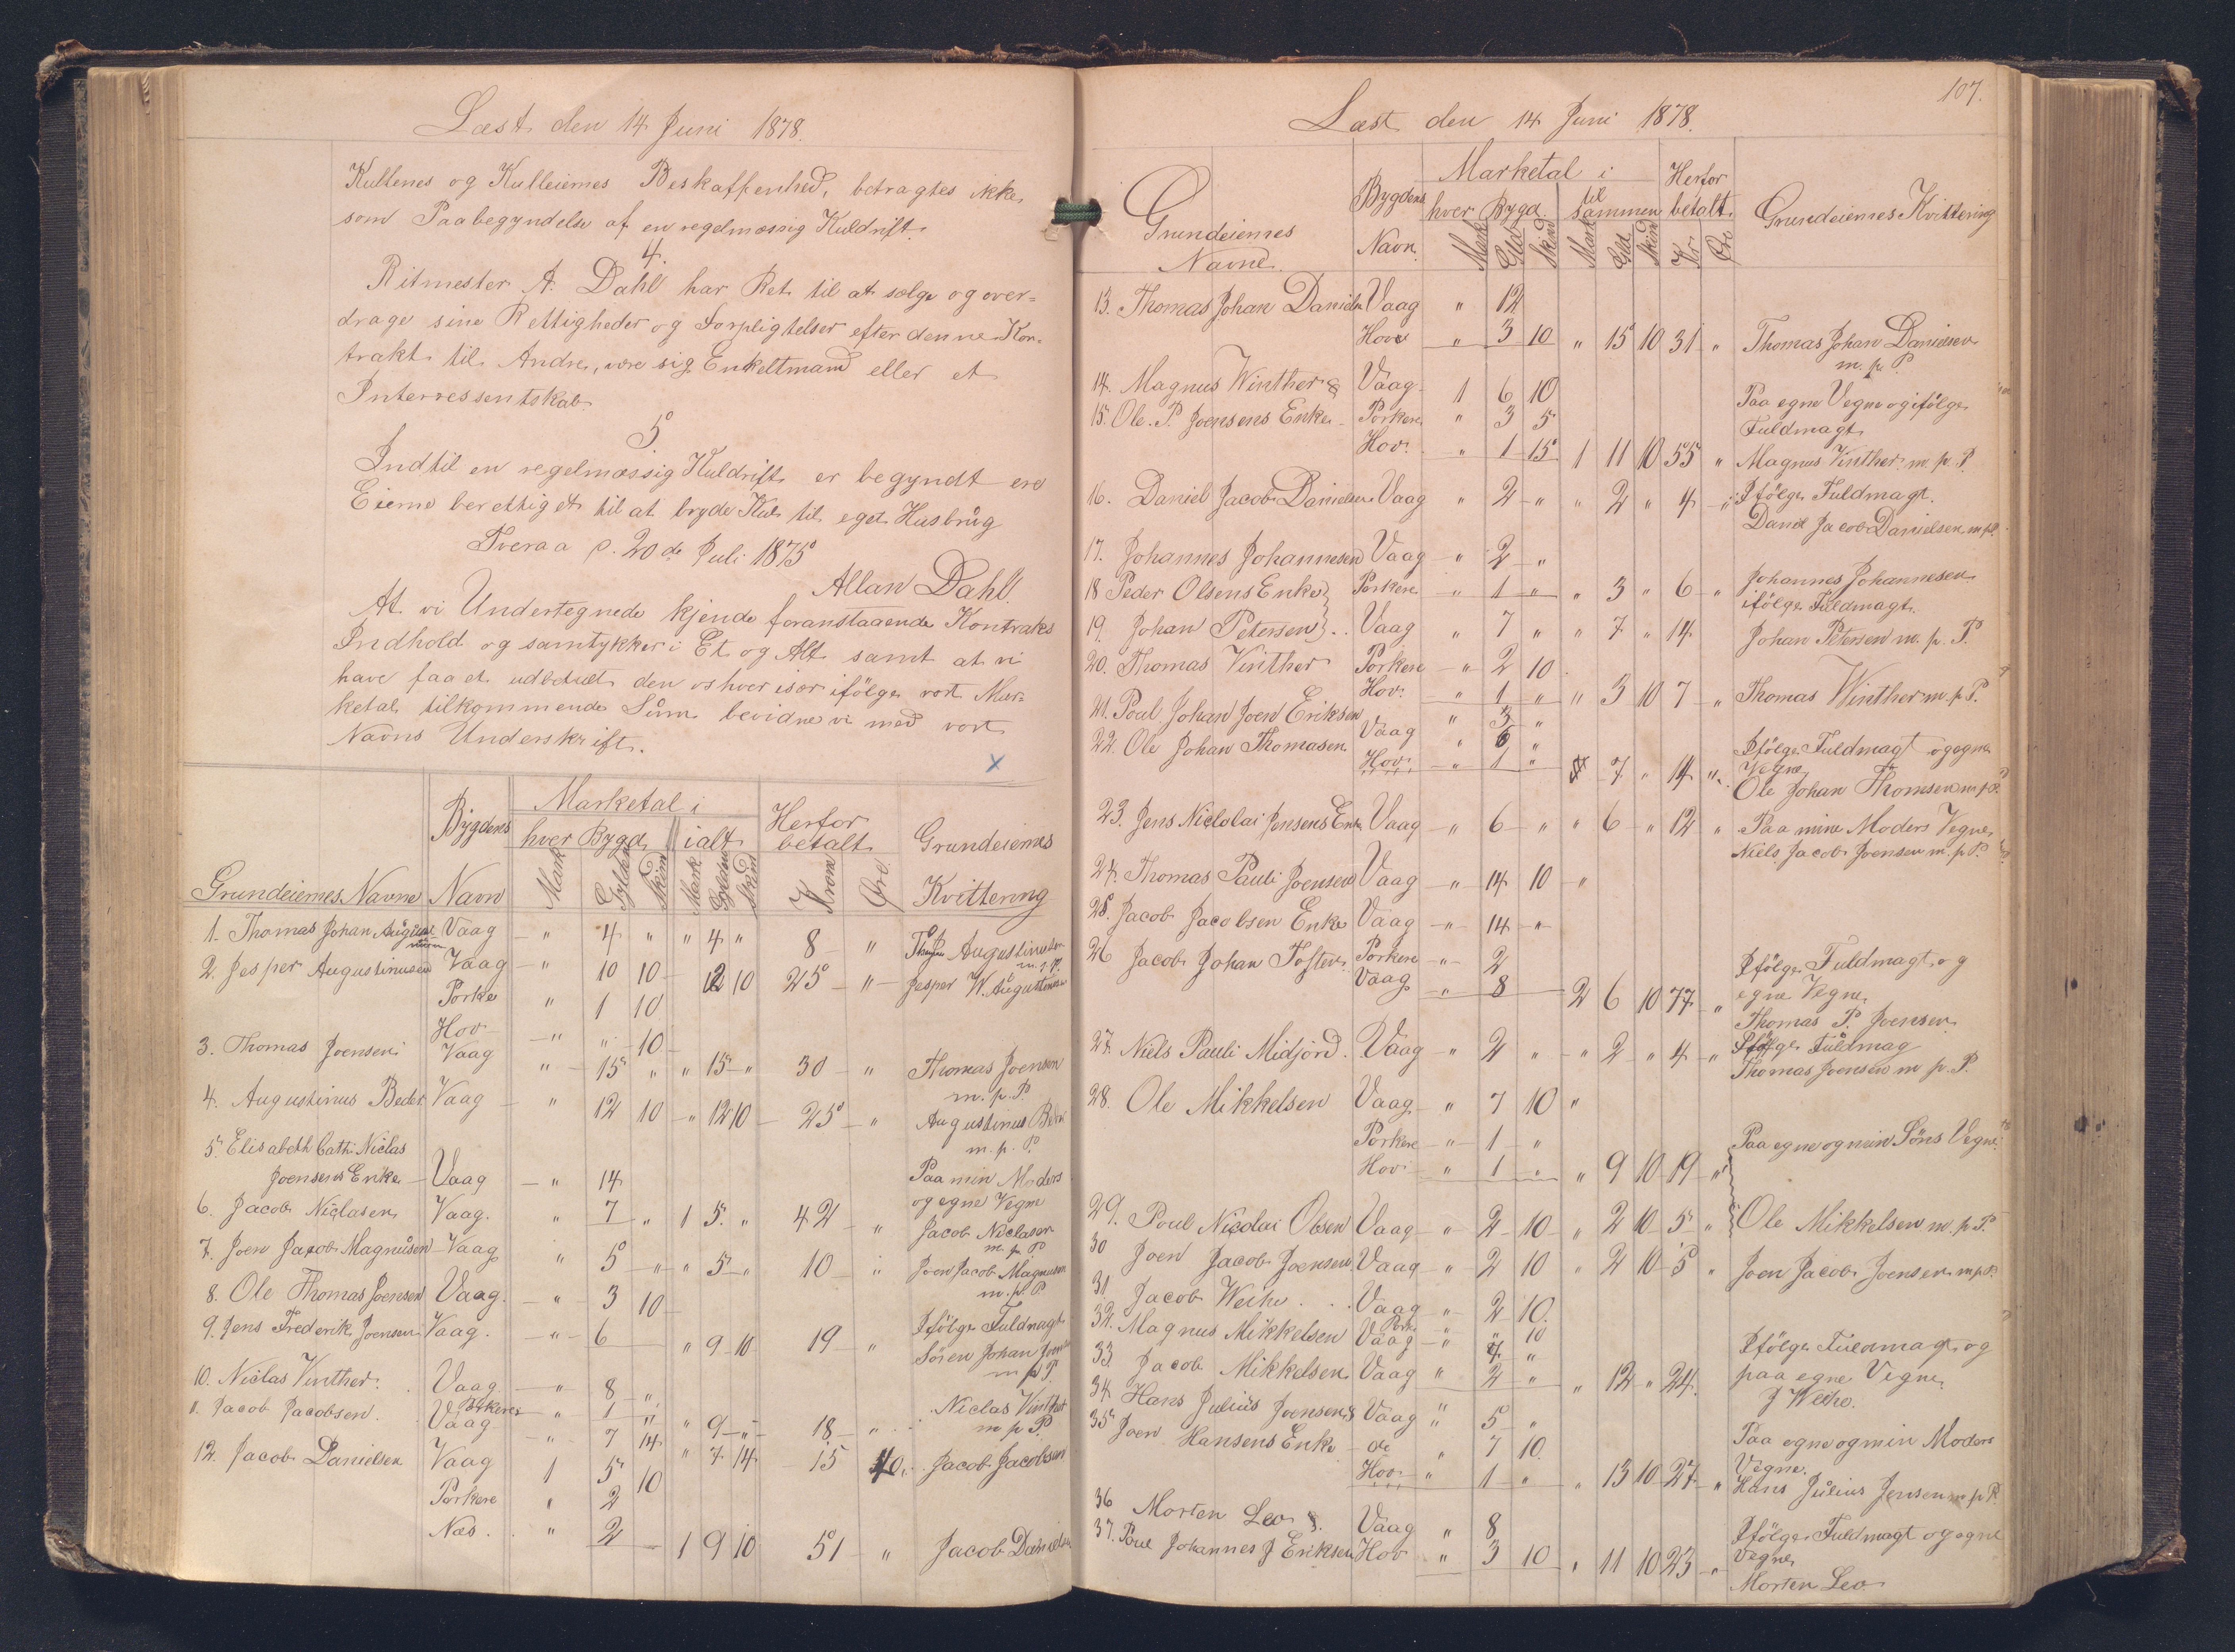 Læst den 14 Juni 1878.
Kullenes og Kulleiernes Beskaffenhed, betragtes ikke
som Paabegyndelse af en regelmæssig Kuldrift.
4.
Ritmester A. Dahl har Ret til at sælge og over-
drage sine Rettigheder og Forpligtelser efter denne Kon-
trakt til Andre, være sig Enkeltmand eller et
Interressentskab
5
Indtil en regelmæssig Kuldrift er begyndt ere
Eierne berettiget til at bryde Kul til eget Husbrug
Tveraa d. 20de Juli 1875
Allan Dahl.
At vi Undertegnede kjende foranstaaende Kontrakts
Indhold og samtykker i Et og Alt samt at vi
have faaet udbetalt den os hver især ifölge vort Mar-
ketal tilkommende Sum bevidne vi med vort
Navns Underskrift.
x
Grundeiernes Navne Bygdens Navn Marketal i Herfor betalt Grundeiernes Kvittering
hver Bygd ialt
Mark Gylden Skind Mark Gylden Skind Kron Øre
1. Thomas Johan Augustinusen Vaag " 4 " " 4 " 8 " Augustinusen
2. Jesper Augustinusen Vaag " 10 10 12 10 25 " Jesper W. Augustinusen
m. p. P.
Porke " 1 10
Hov " " 10
3. Thomas Joensen Vaag " 15 " " 15 " 30 " Thomas Joensen
m. p. P.
4. Augustinus Beder Vaag " 12 10 " 12 10 25 " Augustinus Beder
m. p. P.
5. Elisabeth Cath. Niclas
Joensens Enke Vaag " 14 Paa min Moders
og egne Vegne
6. Jacob Niclasen Vaag. " 7 " 1 5 " 42 " Jacob Niclasen
m. p. P
7. Joen Jacob Magnusen Vaag " 5 " " 5 " 10 " Joen Jacob Magnusen
m. p. P
8. Ole Thomas Joensen Vaag. " 3 10
9. Jens Frederik Joensen Vaag. " 6 " 9 10 19 " Ifölge Fuldmagt
Sören Johan Joensen
m p P.
10. Niclas Vinther. Vaag " 8 "
Porkere " 1 " " 9 " 18 " Niclas Vinther
m p P.
11. Jacob Jacobsen. Vaag " 7 14 " 7 14 15 40 Jacob Jacobsen
12. Jacob Danielsen Vaag 1 5 10
Porkere " 2
Næs. " 2 1 9 10 51 " Jacob Danielsen
107.
Læst den 14 Juni 1878.
Grundeiernes Navne. Bygdens Navn. Marketal i Herfor betalt. Grundeiernes Kvittering
hver Bygd. til sammen
Mark Gyld Skind Mark Gyld Skind Kr Øre
13. Thomas Johan Danielsen Vaag " 12
Hove " 3 10 " 15 10 31 " Thomas Johan Danielsen
m. p. P.
14. Magnus Winther & Vaag 1 6 10 Paa egne Vegne og ifölge
15. Ole. P. Joensens Enke Porkere " 3 5 Fuldmagt
Hov. " 1 15 1 11 10 55 " Magnus Vinther m. p. P.
16. Daniel Jacob Danielsen Vaag " 2 " " 2 " 4 " Ifölge Fuldmagt.
Daniel Jacob Danielsen
17. Johannes Johannesen Vaag " 2 "
18 Peder Olsens Enke Porkere " 1 " " 3 " 6 " Johannes Johannesen
ifölge Fuldmagt.
19. Johan Petersen .. Vaag " 7 " " 7 " 14 Johan Petersen m. p. P.
20. Thomas Vinther Porkere " 2 10
Hov. " 1 " " 3 10 7 " Thomas Winther m. p. P.
21. Poul Johan Joen Eriksen " 3 "
22. Ole Johan Thomasen Vaag " 6 " Ifölge Fuldmagt og egne
Hov. " 1 " 7 " 14 " Vegne
Ole Johan Thomsen m p P.
23. Jens Niclolai Jensens Enke Vaag " 6 " " 6 " 12 " Paa mine Moders Vegne
Niels Jacob Joensen m. p P.
24. Thomas Pauli Joensen Vaag " 14 10 "
25. Jacob Jacobsen Enke Vaag " 14 "
26 Jacob Johan Toftens Porkere " 2 Ifölge Fuldmagt og
Vaag " 8 2 6 10 77 " egne Vegne
Thomas P. Joensen
27. Niels Pauli Midjord. Vaag " 2 " " 2 " 4 " Ifölge Fuldmag
Thomas Joensen m p. P.
28. Ole Mikkelsen Vaag " 7 10 "
Porkere " 1 " Paa egne og min Söns Vegne
Hov " 1 " " 9 10 19 "
29. Poul Nicolai Olsen Vaag " 2 10 " 2 10 5 " Ole Mikkelsen m. p. P.
30 Joen Jacob Joensen Vaag " 2 10 " 2 10 5 " Joen Jacob Joensen m p P.
31 Jacob Weihe . . Vaag " 2 10.
Pork " " 10
32. Magnus Mikkelsen Vaag " 7 " Ifölge Fuldmagt og
33. Jacob Mikkelsen Vaag " 2 " " 12 " 24. paa egne Vegne
J Weihe.
34 Hans Julius Joensen & Vaag " 5 "
35 Joen Hansens Enke do " 7 10 Paa egne og min Moders
Hov " 1 " " 13 10 27 " Vegne.
Hans Julius Jensen m p P.
36 Morten Leo &. Vaag " 8 Ifölge Fuldmagt og egne
37. Poul Johannes J Eriksen Hov " 3 10 " 11 10 23 " Vegne
Morten Leo